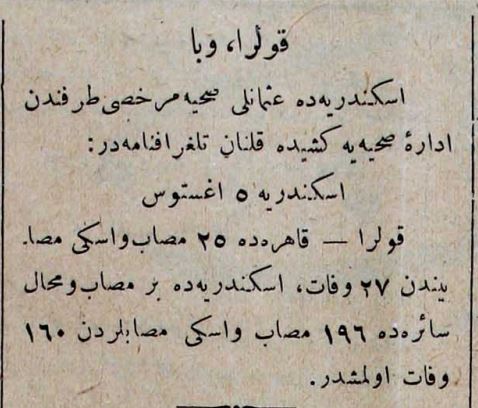 قولرا، وبا
اسكندريه‌ده عثمانلى صحيه مرخصى طرفندن
ادارۀ صحيه‌يه كشيده قلنان تلغرافنامه‌در:
اسكندريه ٥ اغستوس
قولرا — قاهره‌ده ٢٥ مصاب واسكى مصا-
بيندن ٢٧ وفات، اسكندريه‌ده بر مصاب ومحال
سائره‌ده ١٩٦ مصاب واسكى مصابلردن ١٦٠
وفات اولمشدر.